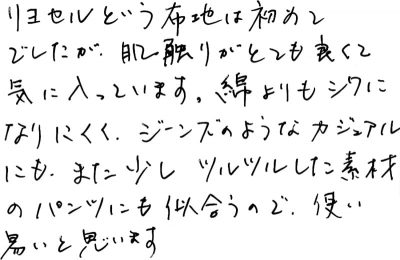 リヨセルという布地は初めて
でしたが、肌触りがとても良くて
気に入っています。綿よりもシワに
なりにくく、ジーンズのようなカジュアル
にも、また少し ツルツルした素材
のパンツにも似合うので、使い
易いと思います